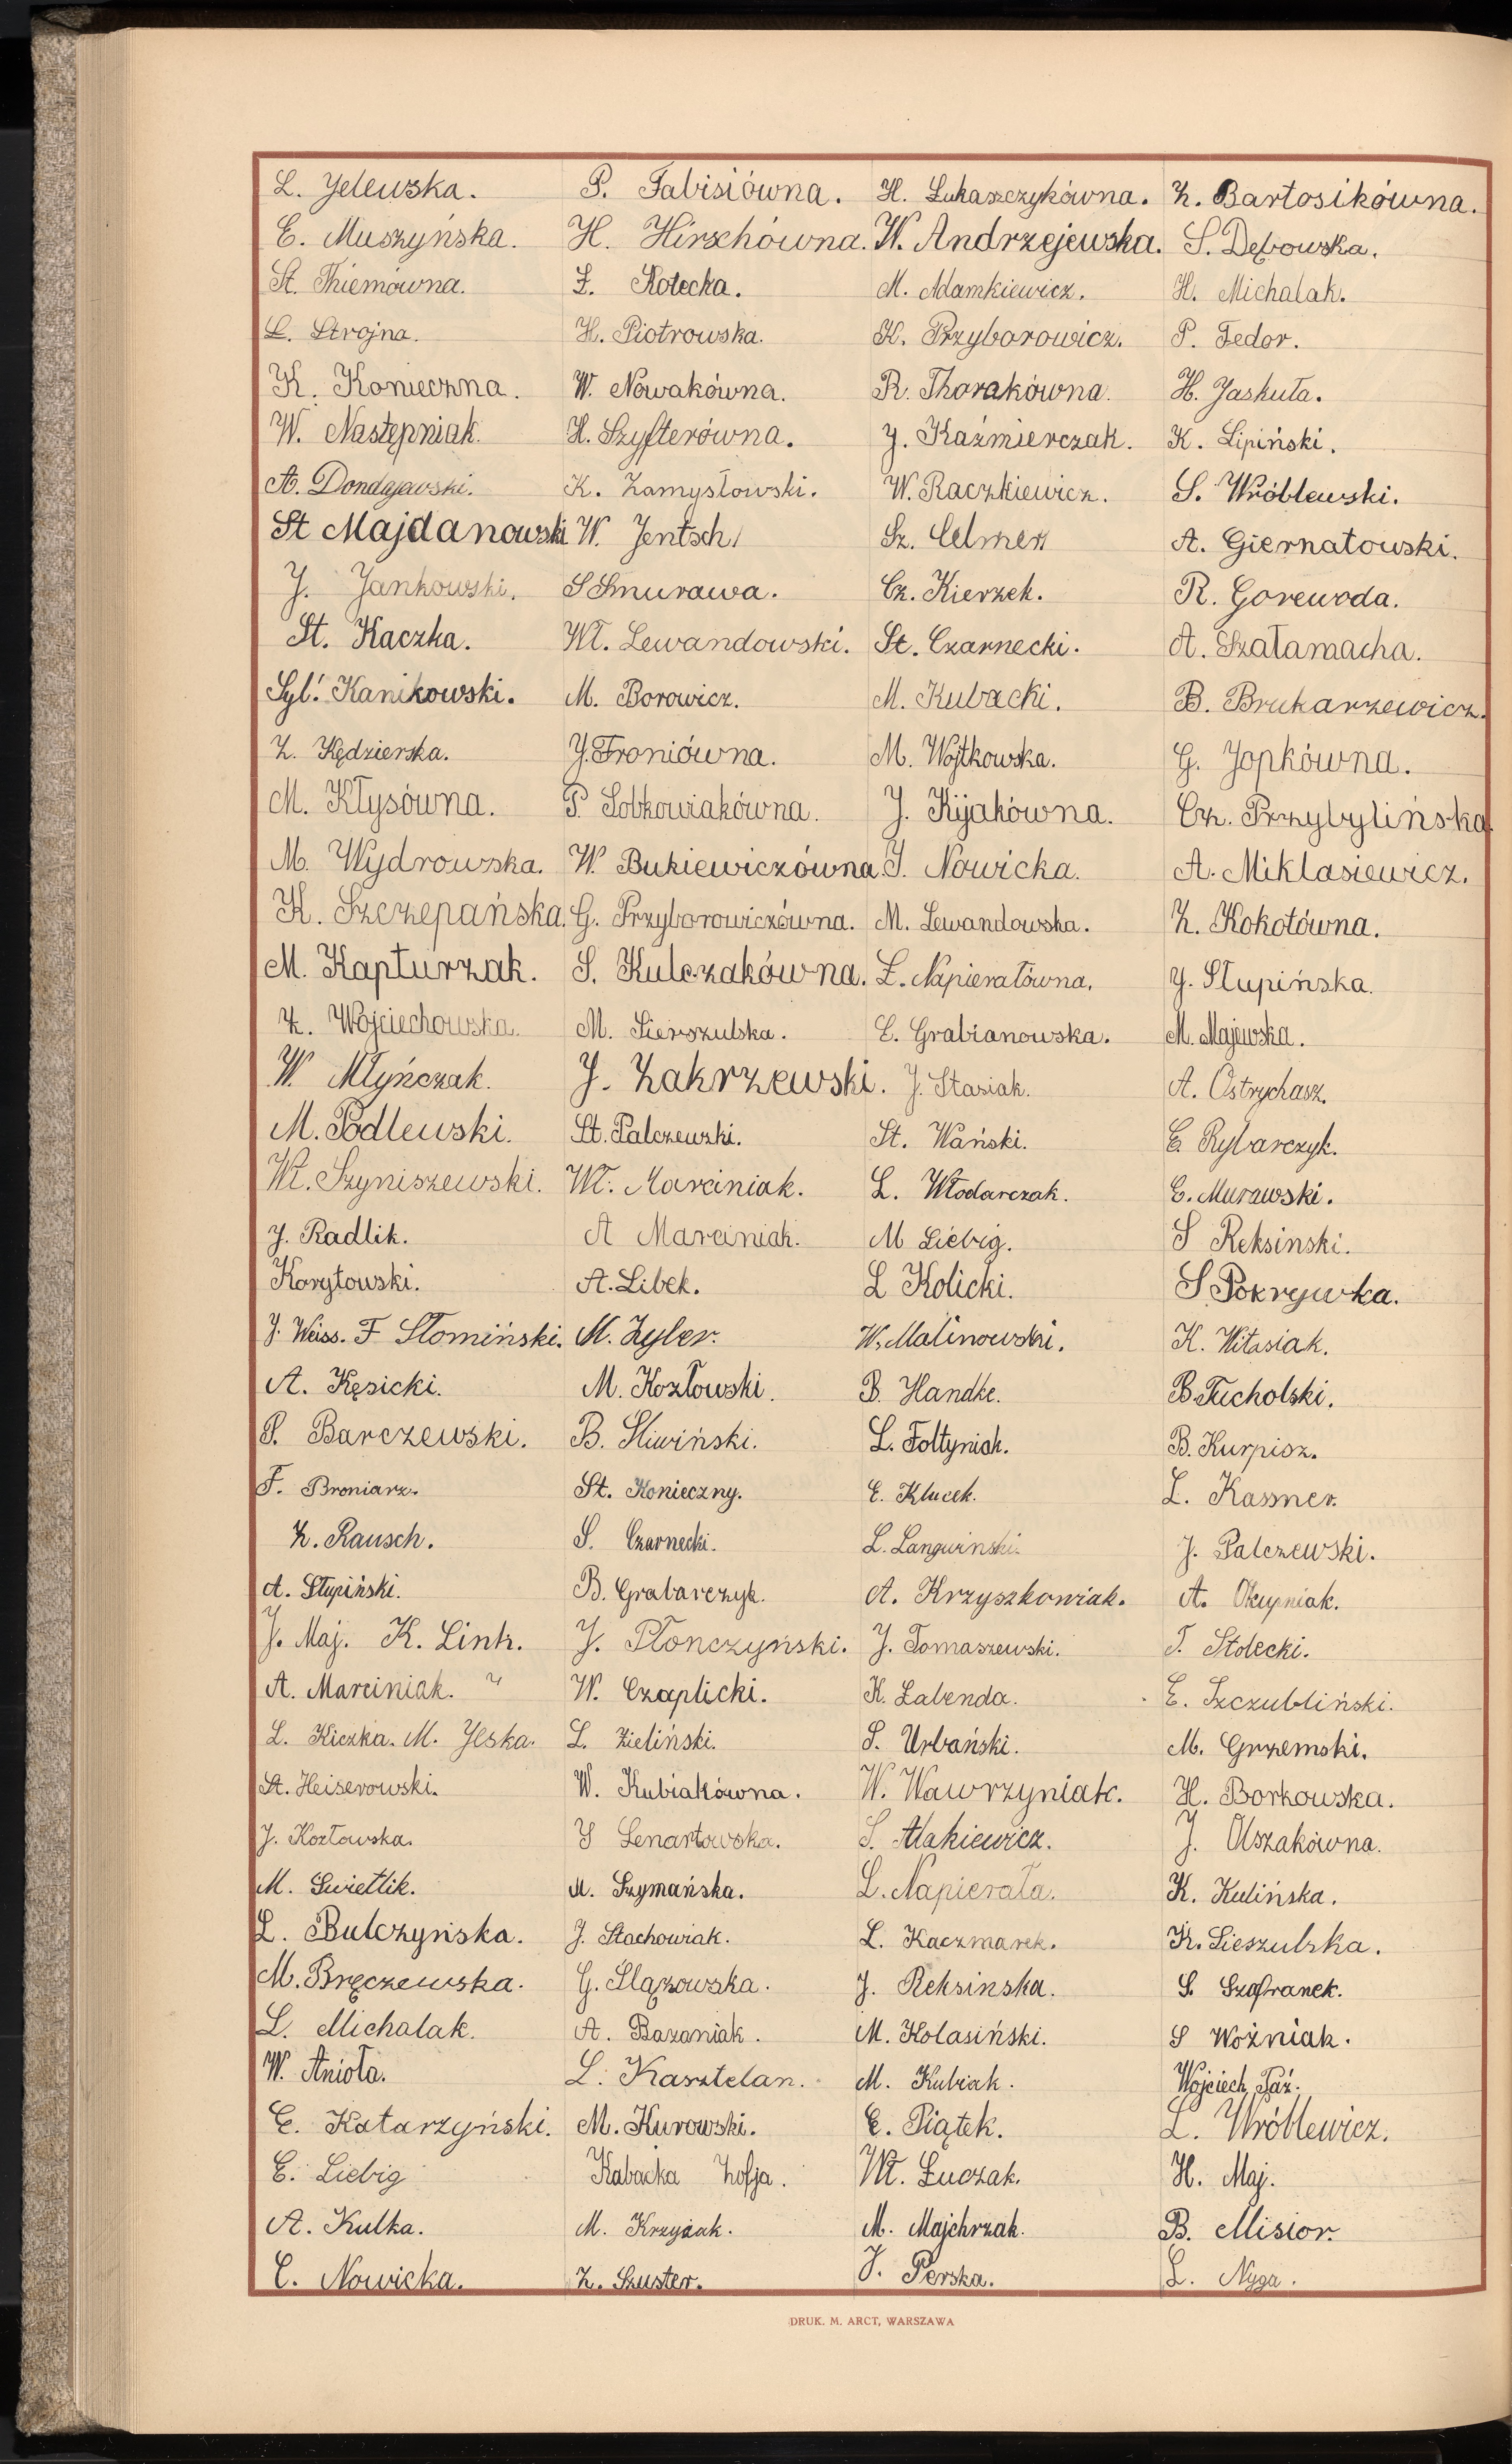 L. Jelewska. P. Fabisiówna. H. Łukaszczykówna. Z. Bartosikówna.
E. Muszyńska. H. Hirschówna. W. Andrzejewska. S. Dębowska.
St. Thiemówna. Z. Kotecka. M. Adamkiewicz. H. Michalak.
L. Strojna. H. Piotrowska. K. Przyborowicz. P. Fedor.
K. Konieczna. W. Nowakówna. R. Thorakówna. H. Jaskuła.
W. Następniak. H. Szyfterówna. J. Kaźmierczak. K. Lipiński.
A. Dondajewski. K. Zamysłowski. W. Raczkiewicz. S. Wróblewski.
St Majdanowski W. Jentsch. Sz. Celmer A. Giernatowski.
J. Jankowski. S Smurawa. Cz. Kierzek. R. Gorewoda.
St. Kaczka. Wł. Lewandowski. St. Czarnecki. A. Szałamacha.
Syl. Kanikowski. M. Borowicz. M. Kubacki. B. Brukarzewicz.
Z. Kędzierska. J. Froniówna. M. Wojtkowska. G. Jopkówna.
M. Kłysówna. P. Sobkowiakówna. J. Kijakówna. Cz. Przybylińska.
M. Wydrowska. W. Bukiewiczówna. I. Nowicka. A. Miklasiewicz.
K. Szczepańska. G. Przyborowiczówna. M. Lewandowska. Z. Kokotówna.
M. Kapturzak. S. Kulczakówna. Ł. Napierałówna. J. Słupińska.
Z. Wojciechowska. M. Sierszulska. E. Grabianowska. M. Majewska.
W. Młyńczak. J. Zakrzewski. J. Stasiak. A. Ostrychasz.
M. Podlewski. St. Palczewski. St. Wański. E. Rybarczyk.
Wł. Szyniszewski. Wł. Marciniak. L. Włodarczak. E. Murawski.
J. Radlik. A Marciniak. M Liebig. S Reksinski.
Korytowski. A. Libek. L Kolicki. S Pokrywka.
J. Weiss. F Słomiński. M. Zyler. W. Malinowski. K. Witasiak.
A. Kęsicki. M. Kozłowski. B. Handke. B. Tucholski.
P. Barczewski. B. Śliwiński. L. Foltyniak. B. Kurpisz.
F. Broniarz. St. Konieczny. E. Klucek. L. Kassner.
Z. Rausch. S. Czarnecki. L. Langwinski. J. Palczewski.
A. Słupiński. B. Grabarczyk. A. Krzyszkowiak. A. Okupniak.
J. Maj. K. Link. J. Płonczyński. J. Tomaszewski. T. Stolecki.
A. Marciniak. W. Czaplicki. K. Labenda. E. Szczubliński.
L. Kiczka. M. Jeska. L. Zieliński. S. Urbański. M. Grzemski.
St. Heiserowski. W. Kubiakówna. W. Wawrzyniak. H. Borkowska.
J. Kozłowska. J Lenartowska. S. Makiewicz. J. Olszakówna.
M. Swietlik. M. Szymańska. L. Napierała. K. Kulińska.
L. Bulczyńska. J. Stachowiak. L. Kaczmarek. K. Sieszulska.
M. Bręczewska. G. Slązowska. J. Reksinska. S. Szafranek.
L. Michalak. A. Bazaniak. M. Kolasiński. S Woźniak.
W. Anioła. L. Kasztelan. M. Kubiak. Wojciech Paź.
E. Katarzyński. M. Kurowski. E. Piątek. L. Wróblewicz.
E. Liebig Kabacka Zofja. Wł. Łuczak. H. Maj.
A. Kulka. M. Krzyżak. M. Majchrzak. B. Misior.
C. Nowicka. Z. Szuster. J. Perska. L. Nyga.
DRUK. M. ARCT, WARSZAWA